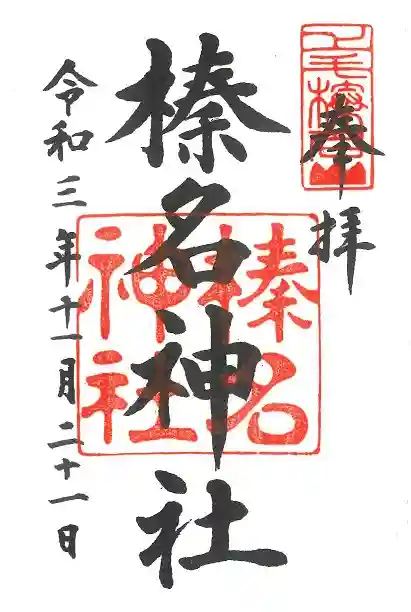 奉拝
榛名神社
令和三年十一月二十一日
榛名
神社